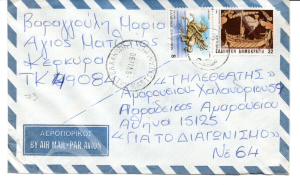 Βαραγγούλη Μαρία
Άγιος Ματθαίος
Κέρκυρα
ΤΚ 49084
ΕΛΛΗΝΙΚΗ ΔΗΜΟΚΡΑΤΙΑ 32
"ΤΗΛΕΘΕΑΤΗΣ"
Αμαρουσίου Χαλανδρίου 59
Παράδεισος Αμαρουσίου
Αθήνα 15125
"ΓΙΑ ΤΟ ΔΙΑΓΩΝΙΣΜΟ
Νε 64
ΑΕΡΟΠΟΡΙΚΩΣ
BY AIR MAIL · PAR AVION